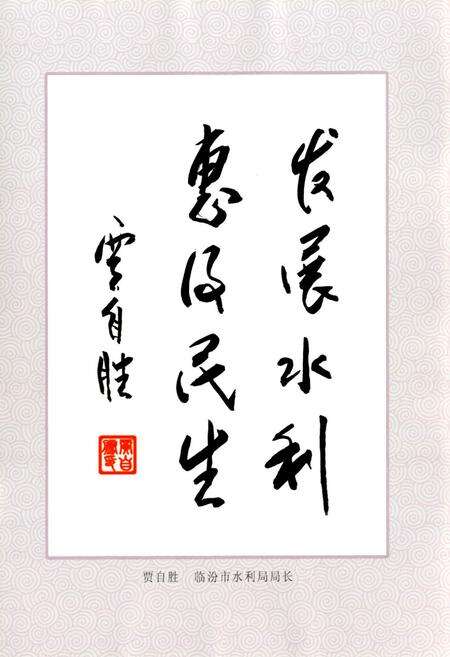 发展水利
惠及民生
贾自胜
贾自胜 临汾市水利局局长